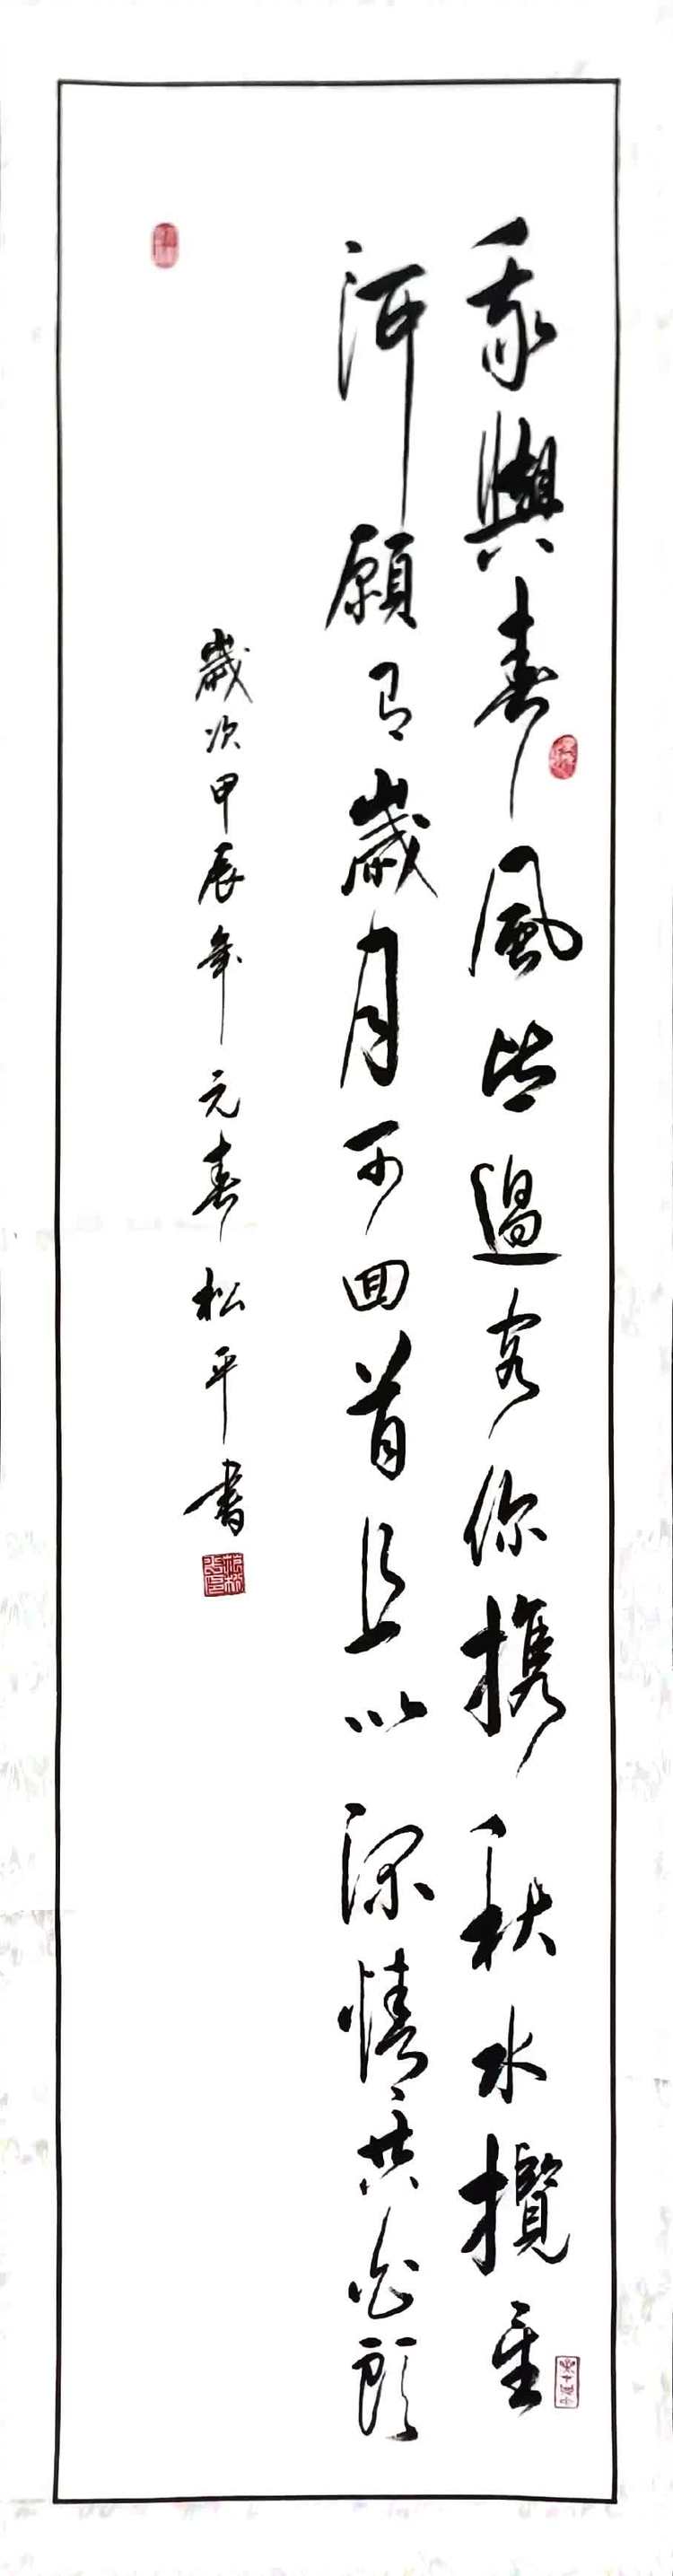 我與春風皆過客你携秋水攬星
河願有歲月可回首且以深情共白頭
歲次甲辰年元春松平書